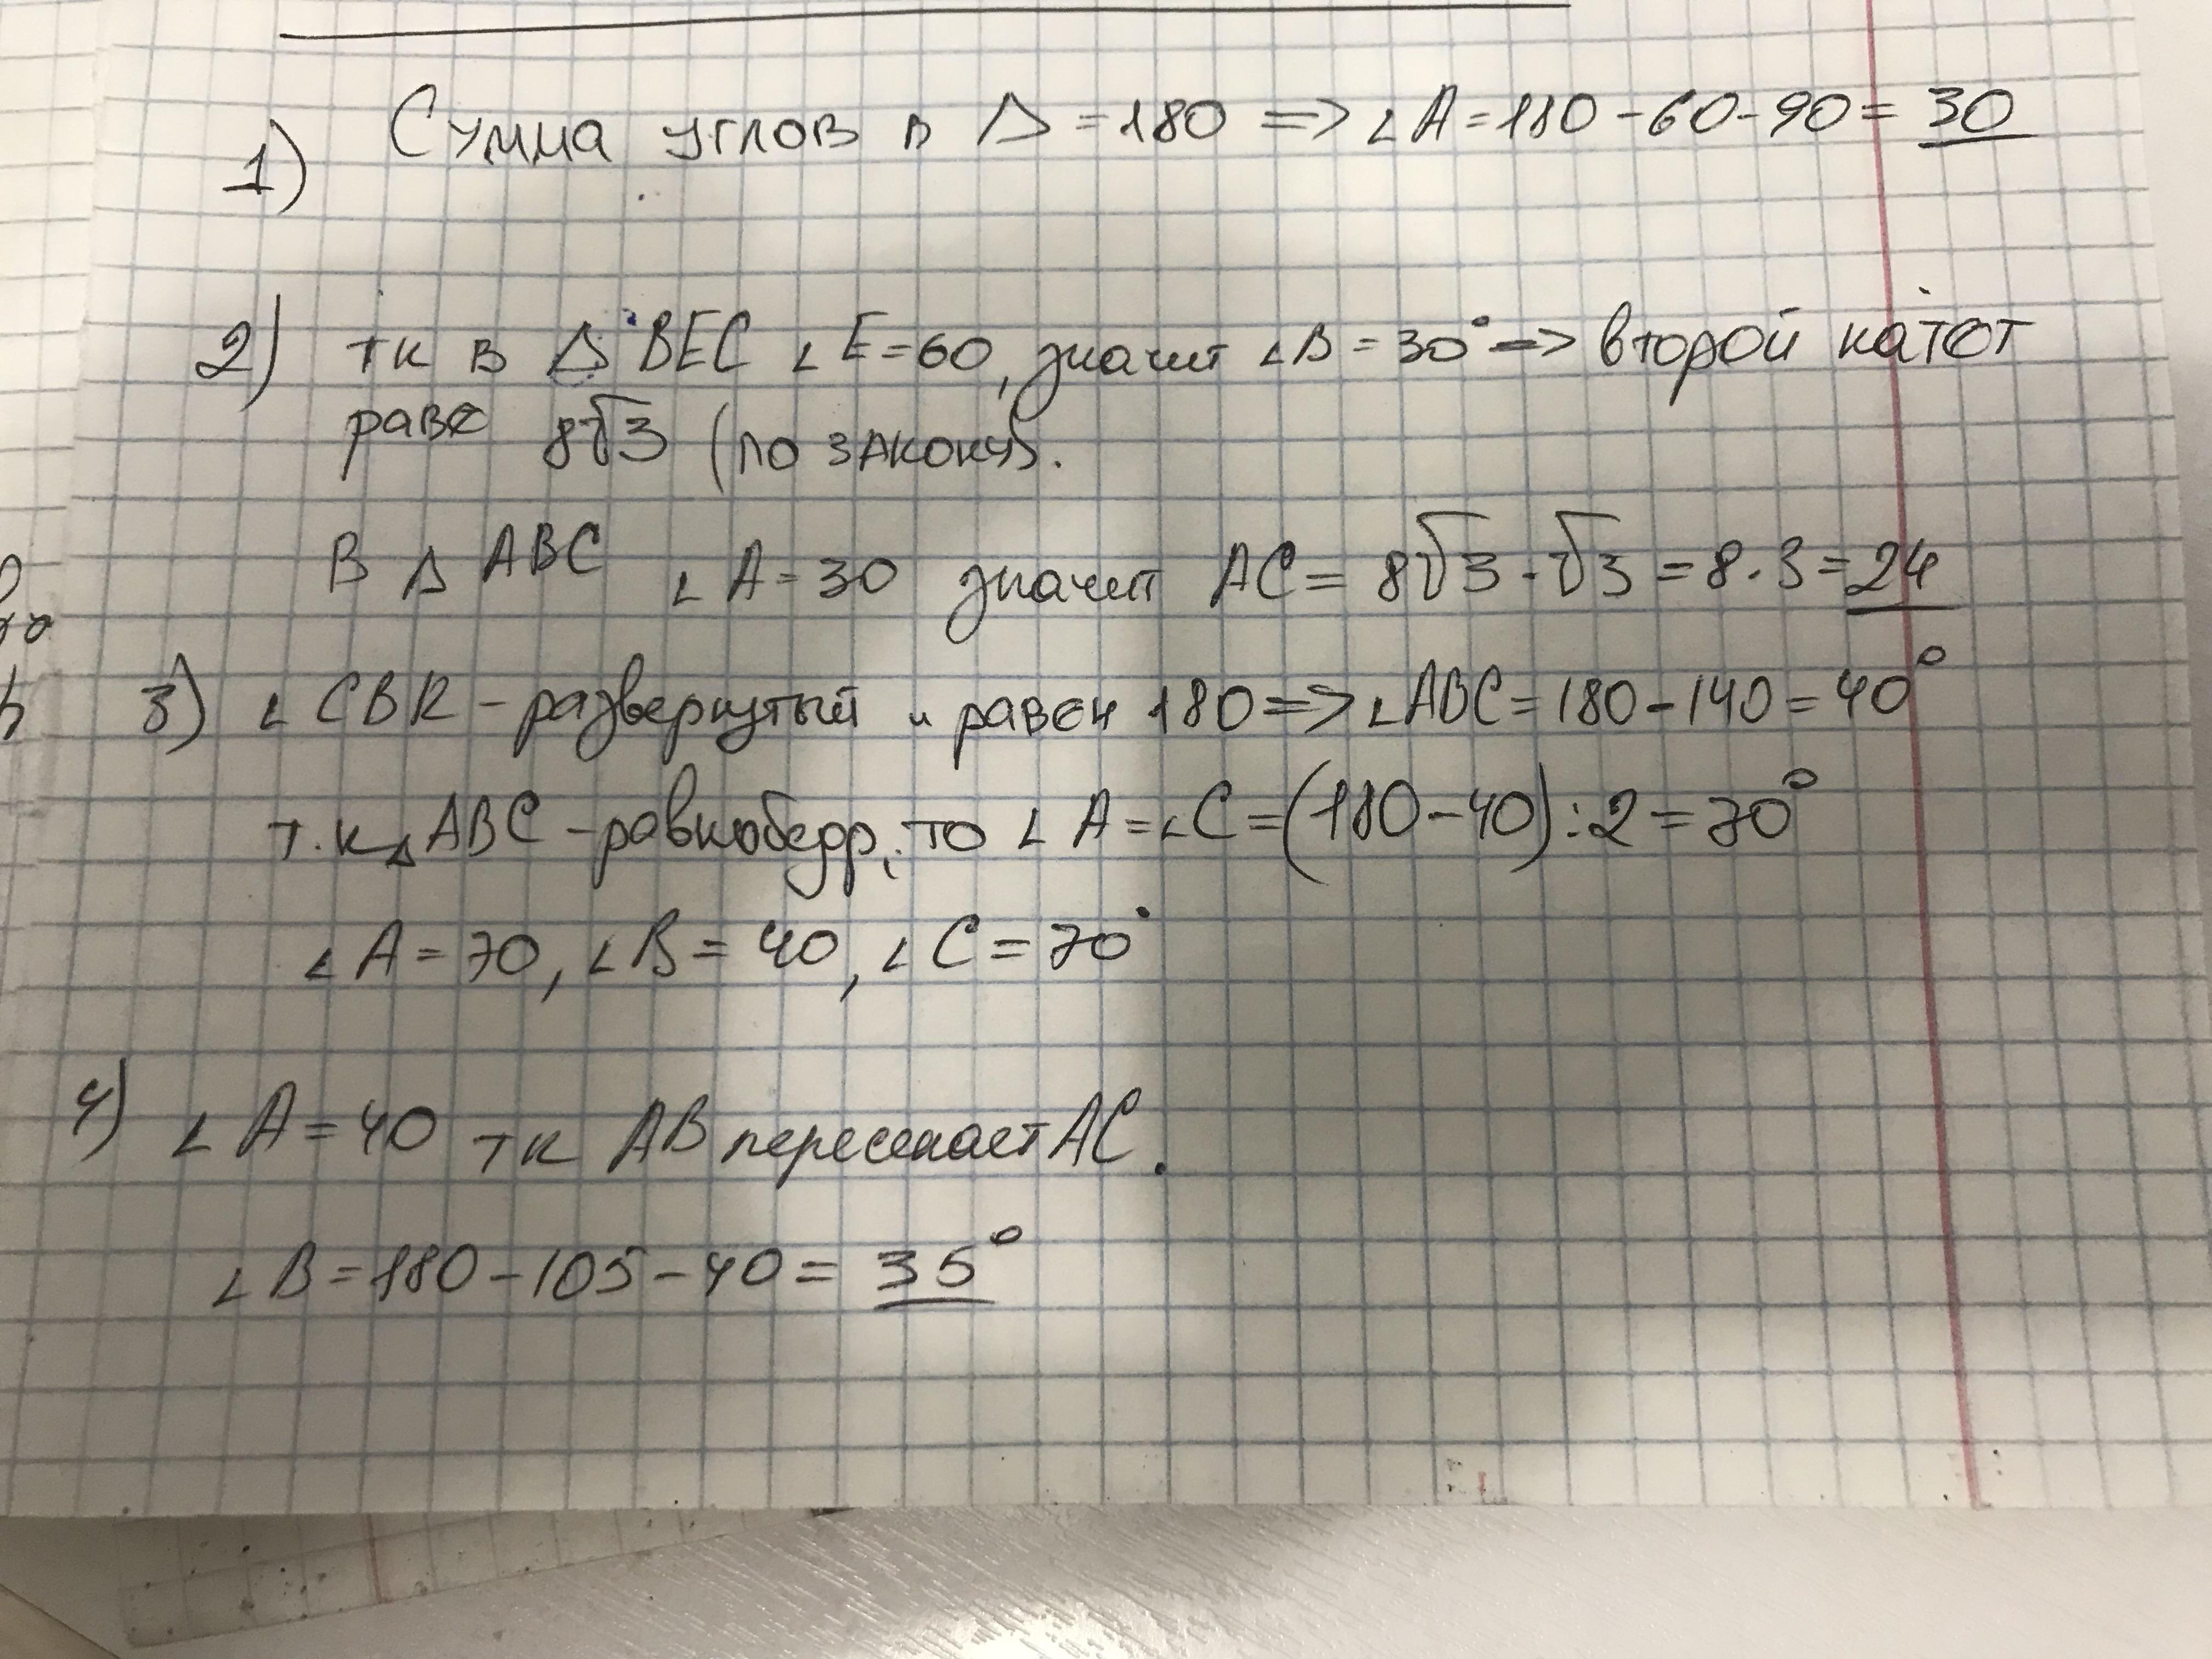 1) Сумма углов в △ = 180 => ∠A = 180 - 60 - 90 = 30
2) тк в △ BEC ∠E = 60, значит ∠B = 30° => второй катет
раве 8√3 (по закону).
В △ ABC ∠A = 30 значит AC = 8√3 · √3 = 8 · 3 = 24
3) ∠CBR - развернутый и равен 180 => ∠ABC = 180 - 140 = 40°
т.к △ ABC - равнобедр, то ∠A = ∠C = (180 - 40) : 2 = 70°
∠A = 70, ∠B = 40, ∠C = 70°
4) ∠A = 40 тк AB пересекает AC.
∠B = 180 - 105 - 40 = 35°